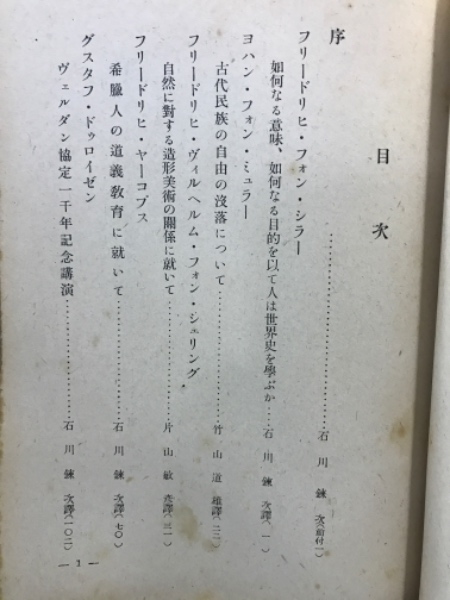 目次
序……………………石川錬次(前付一)
フリードリヒ・フォン・シラー
如何なる意味、如何なる目的を以て人は世界史を學ぶか…石川錬次譯(一)
ヨハン・フォン・ミュラー
古代民族の自由の沒落について……………竹山道雄譯(二二)
フリードリヒ・ヴィルヘルム・フォン・シェリング
自然に對する造形美術の關係に就いて……………片山敏彦譯(三一)
フリードリヒ・ヤーコプス
希臘人の道義教育に就いて……………石川錬次譯(七〇)
グスタフ・ドゥロイゼン
ヴェルダン協定一千年記念講演……………石川錬次譯(一〇二)
— 1 —